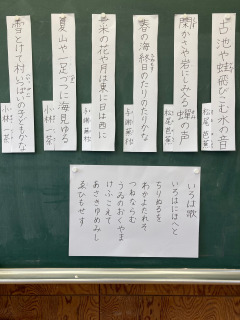 古池や蛙飛びこむ水の音
松尾芭蕉
閑かさや岩にしみ入る蝉の声
松尾芭蕉
春の海終日のたりのたりかな
与謝蕪村
菜の花や月は東に日は西に
与謝蕪村
夏山や一足づつに海見ゆる
小林一茶
雪とけて村いっぱいの子どもかな
小林一茶
いろは歌
いろはにほへと
ちりぬるを
わかよたれそ
つねならむ
うゐのおくやま
けふこえて
あさきゆめみし
ゑひもせす